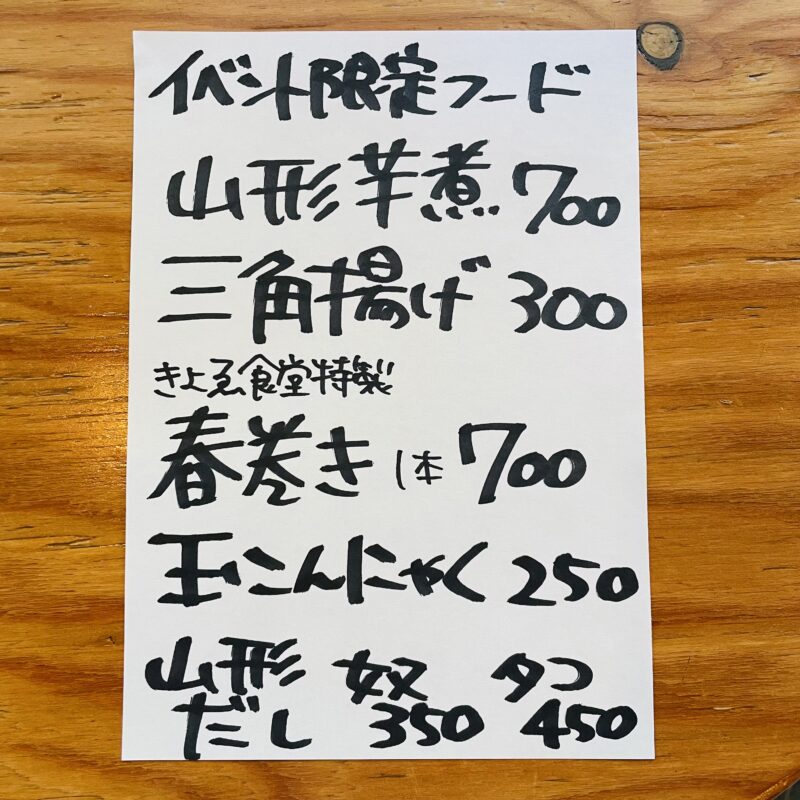 イベント限定フード
山形芋煮 700
三角揚げ 300
きよゑ食堂特製
春巻き 1本 700
玉こんにゃく 250
山形 奴 タコ
だし 350 450